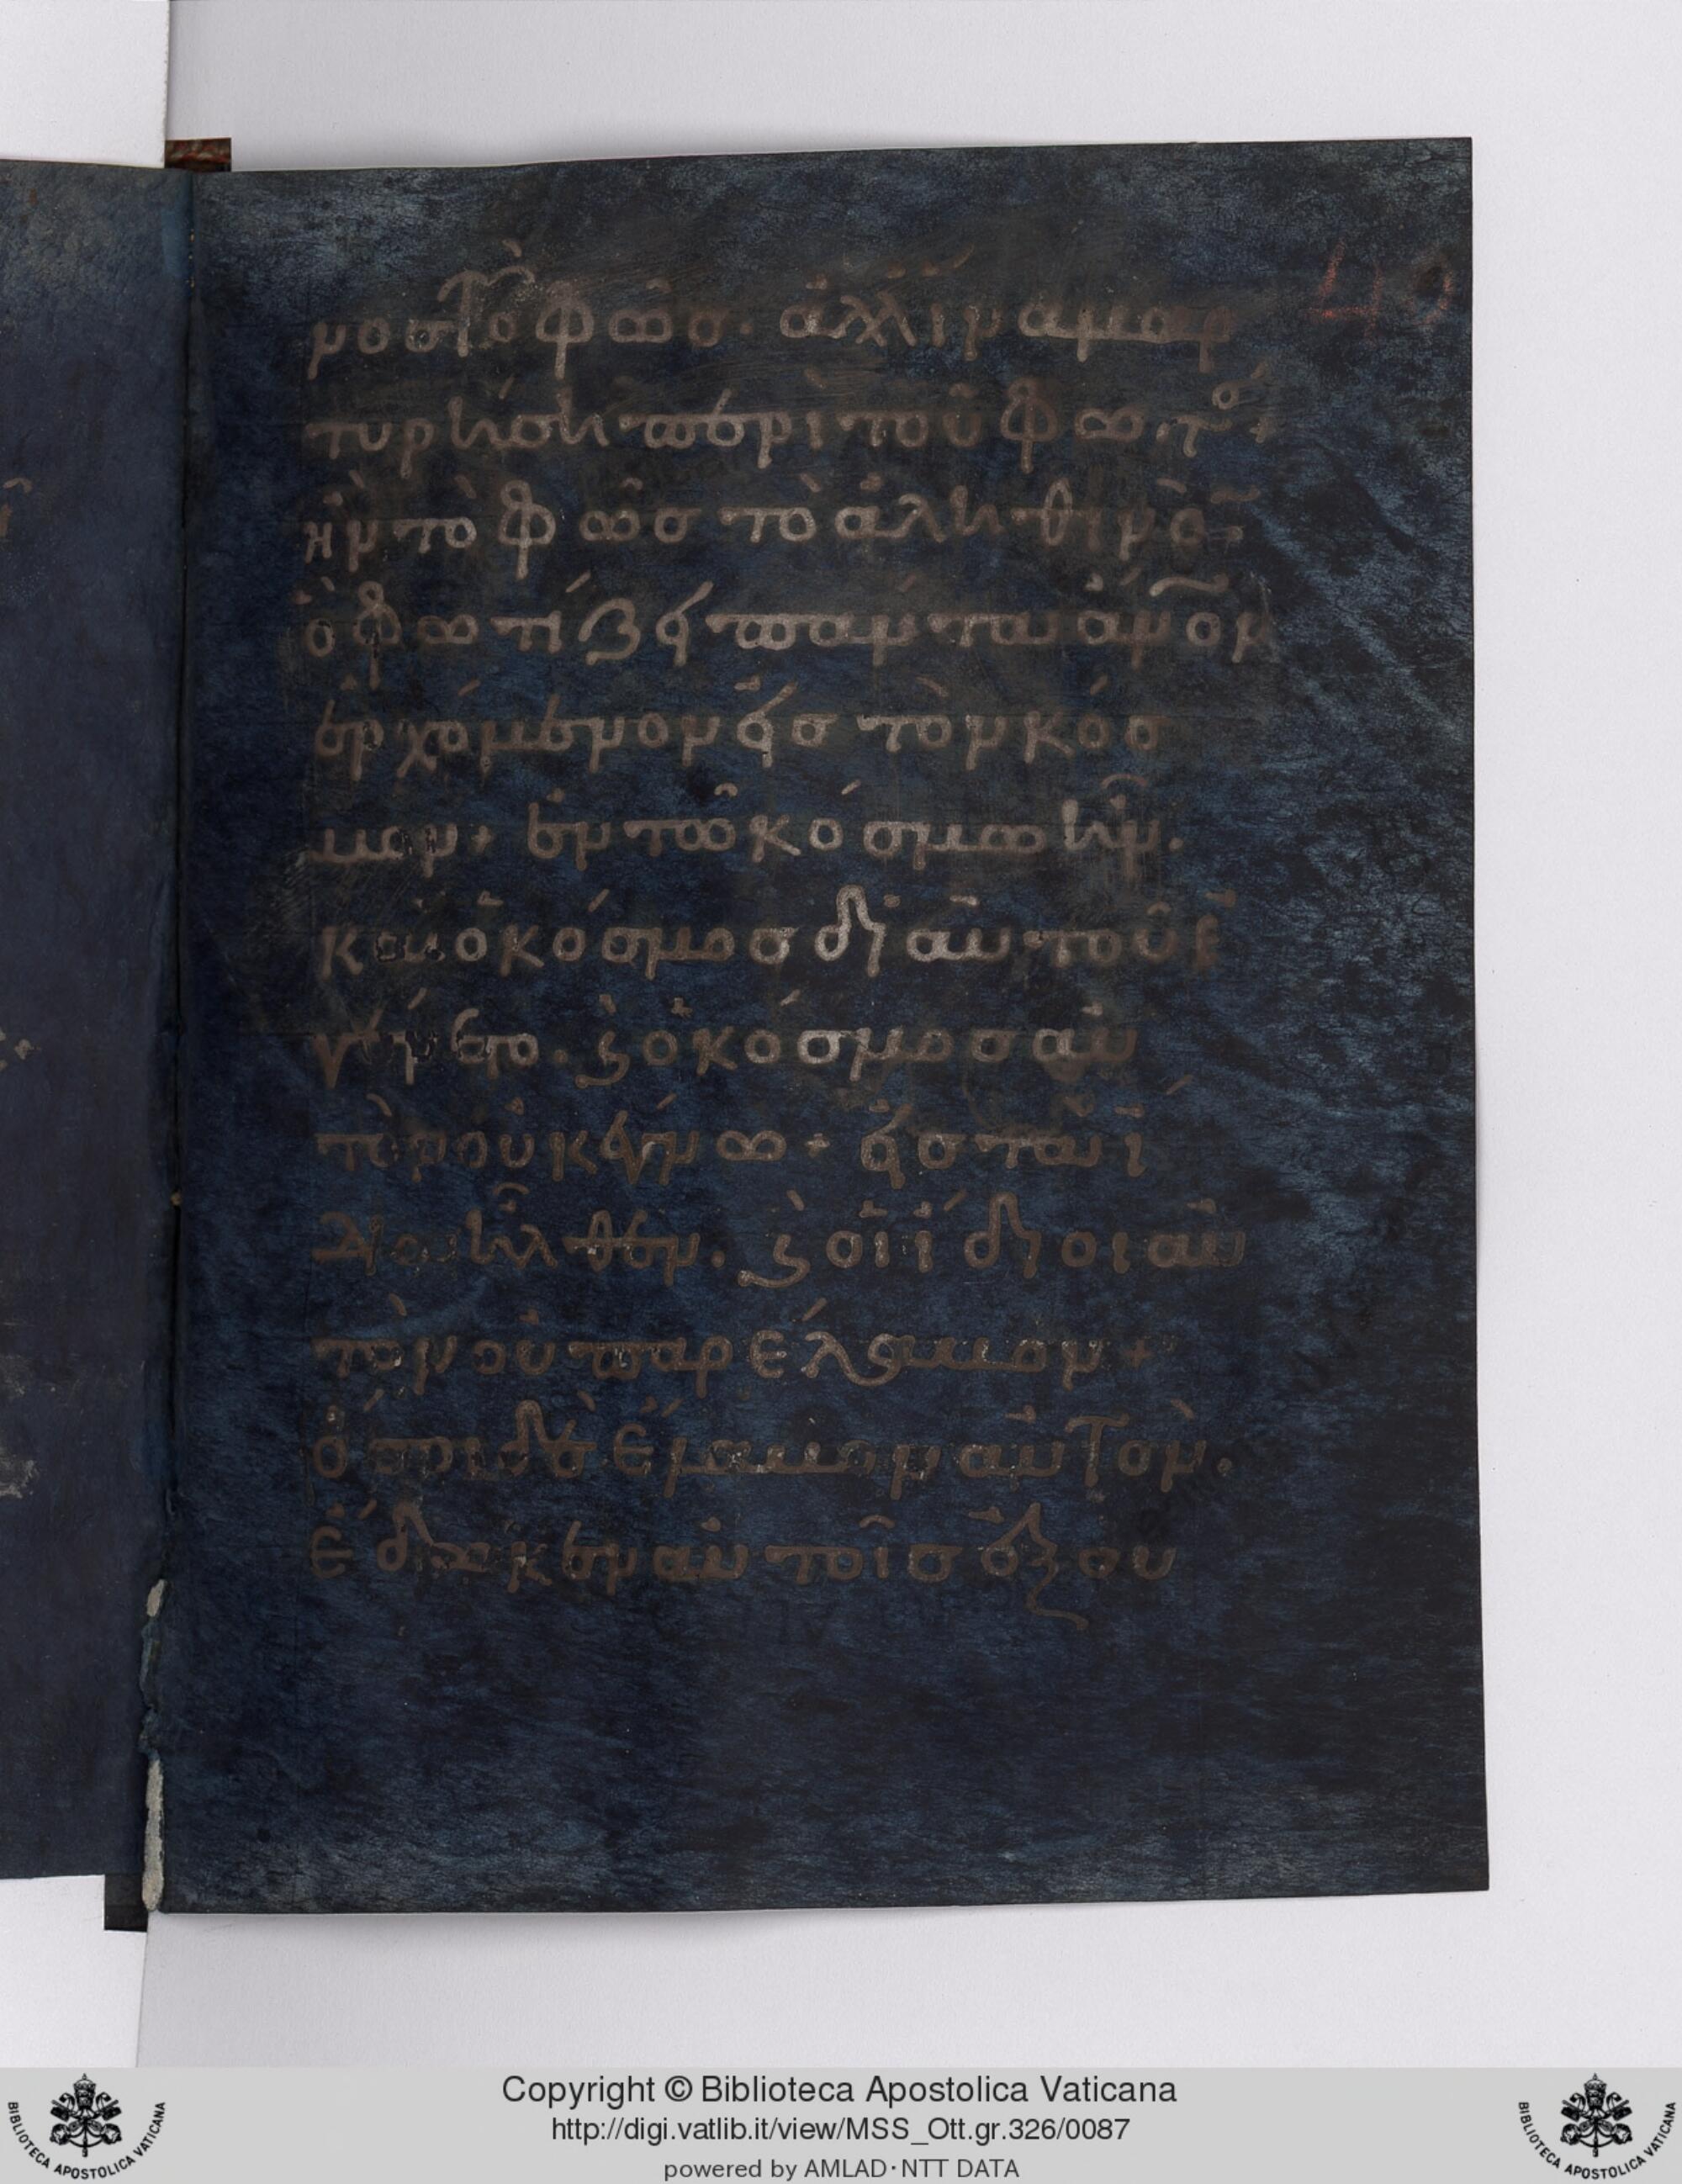 νοσ τὸ φῶσ· ἀλλ' ἵνα μαρ
τυρήση περὶ τοῦ φωτό+
ἦν τὸ φῶσ τὸ ἀληθινὸ
ὃ φωτίζει πάντα ἀν̅ον
ἐρχόμενον εἰσ τὸν κόσ
μον+ ἐν τῶ κόσμω ἦν.
καὶ ὁ κόσμοσ δι' αὐτοῦ ἐ
γένετο. ϗ ὁ κόσμοσ αὐ
τὸν οὐκ ἔγνω+ εἰσ τὰ ἴ
δια ἦλθεν. ϗ οἱ ἴδιοι αὐ
τὸν οὐ παρέλαβον+
ὅσοι δὲ ἔλαβον αὐτὸν.
ἔδωκεν αὐτοῖσ ἐξου
Copyright © Biblioteca Apostolica Vaticana
http://digi.vatlib.it/view/MSS_Ott.gr.326/0087
powered by AMLAD·NTT DATA
BIBLIOTECA APOSTOLICA VATICANA
BIBLIOTECA APOSTOLICA VATICANA